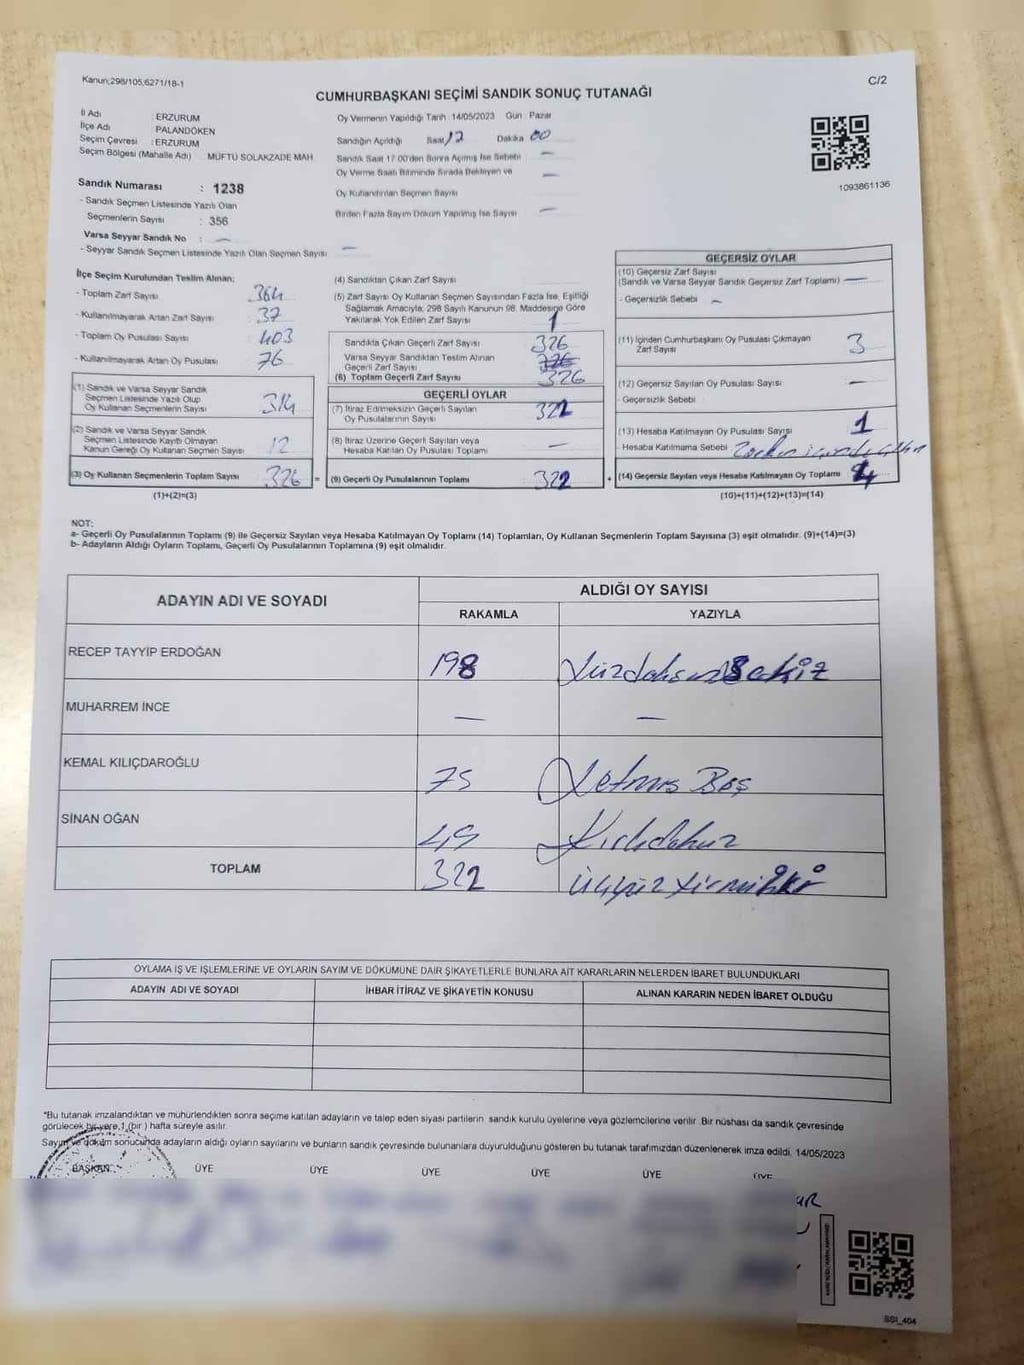 Kanun;298/105,6271/18-1
C/2
CUMHURBAŞKANI SEÇİMİ SANDIK SONUÇ TUTANAĞI
İl Adı : ERZURUM
İlçe Adı : PALANDÖKEN
Seçim Çevresi : ERZURUM
Seçim Bölgesi (Mahalle Adı) MÜFTÜ SOLAKZADE MAH
Oy Vermenin Yapıldığı Tarih 14/05/2023 Gün Pazar
Sandığın Açıldığı Saat 17 Dakika 00
Sandık Saat 17 00'den Sonra Açılmış İse Sebebi —
Oy Verme Saati Bitiminde Sırada Bekleyen ve —
Oy Kullandırılan Seçmen Sayısı
Birden Fazla Sayım Döküm Yapılmış İse Sayısı —
1093861136
Sandık Numarası : 1238
- Sandık Seçmen Listesinde Yazılı Olan
Seçmenlerin Sayısı : 356
Varsa Seyyar Sandık No : —
- Seyyar Sandık Seçmen Listesinde Yazılı Olan Seçmen Sayısı —
İlçe Seçim Kurulundan Teslim Alınan;
- Toplam Zarf Sayısı 364
- Kullanılmayarak Artan Zarf Sayısı 37
- Toplam Oy Pusulası Sayısı 403
- Kullanılmayarak Artan Oy Pusulası 76
(1) Sandık ve Varsa Seyyar Sandık
Seçmen Listesinde Yazılı Olup
Oy Kullanan Seçmenlerin Sayısı 314
(2) Sandık ve Varsa Seyyar Sandık
Seçmen Listesinde Kayıtlı Olmayan
Kanun Gereği Oy Kullanan Seçmen Sayısı 12
(3) Oy Kullanan Seçmenlerin Toplam Sayısı 326 =
(1)+(2)=(3)
(4) Sandıktan Çıkan Zarf Sayısı
(5) Zarf Sayısı Oy Kullanan Seçmen Sayısından Fazla İse, Eşitliği
Sağlamak Amacıyla; 298 Sayılı Kanunun 98. Maddesine Göre
Yakılarak Yok Edilen Zarf Sayısı 1
Sandıkta Çıkan Geçerli Zarf Sayısı 326
Varsa Seyyar Sandıktan Teslim Alınan
Geçerli Zarf Sayısı
(6) Toplam Geçerli Zarf Sayısı 326
GEÇERLİ OYLAR
(7) İtiraz Edilmeksizin Geçerli Sayılan
Oy Pusulalarının Sayısı 322
(8) İtiraz Üzerine Geçerli Sayılan veya
Hesaba Katılan Oy Pusulası Toplamı —
(9) Geçerli Oy Pusulalarının Toplamı 322 +
GEÇERSİZ OYLAR
(10) Geçersiz Zarf Sayısı
(Sandık ve Varsa Seyyar Sandık Geçersiz Zarf Toplamı) —
- Geçersizlik Sebebi —
(11) İçinden Cumhurbaşkanı Oy Pusulası Çıkmayan
Zarf Sayısı 3
(12) Geçersiz Sayılan Oy Pusulası Sayısı —
- Geçersizlik Sebebi
(13) Hesaba Katılmayan Oy Pusulası Sayısı 1
- Hesaba Katılmama Sebebi
(14) Geçersiz Sayılan veya Hesaba Katılmayan Oy Toplamı 4
(10)+(11)+(12)+(13)=(14)
NOT:
a- Geçerli Oy Pusulalarının Toplamı (9) ile Geçersiz Sayılan veya Hesaba Katılmayan Oy Toplamı (14) Toplamları, Oy Kullanan Seçmenlerin Toplam Sayısına (3) eşit olmalıdır. (9)+(14)=(3)
b- Adayların Aldığı Oyların Toplamı, Geçerli Oy Pusulalarının Toplamına (9) eşit olmalıdır.
ADAYIN ADI VE SOYADI
ALDIĞI OY SAYISI
RAKAMLA
YAZIYLA
RECEP TAYYİP ERDOĞAN 198 YüzdoksanSekiz
MUHARREM İNCE — —
KEMAL KILIÇDAROĞLU 75 Yetmiş Beş
SİNAN OĞAN 49 Kırkdokuz
TOPLAM 322 Üçyüz Yirmiiki
OYLAMA İŞ VE İŞLEMLERİNE VE OYLARIN SAYIM VE DÖKÜMÜNE DAİR ŞİKAYETLERLE BUNLARA AİT KARARLARIN NELERDEN İBARET BULUNDUKLARI
ADAYIN ADI VE SOYADI
İHBAR İTİRAZ VE ŞİKAYETİN KONUSU
ALINAN KARARIN NEDEN İBARET OLDUĞU
*Bu tutanak imzalandıktan ve mühürlendikten sonra seçime katılan adayların ve talep eden siyasi partilerin, sandık kurulu üyelerine veya gözlemcilerine verilir. Bir nüshası da sandık çevresinde
görülecek bir yere 1 (bir) hafta süreyle asılır.
Sayım ve döküm sonucunda adayların aldığı oyların sayılarını ve bunların sandık çevresinde bulunanlara duyurulduğunu gösteren bu tutanak tarafımızdan düzenlenerek imza edildi. 14/05/2023
BAŞKAN ÜYE ÜYE ÜYE ÜYE ÜYE ÜYE
SSI_404